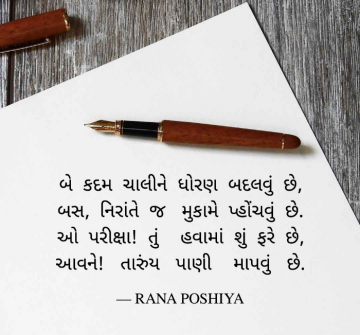 બે કદમ ચાલીને ધોરણ બદલવું છે,
બસ, નિરાંતે જ મુકામે પ્હોંચવું છે.
ઓ પરીક્ષા! તું હવામાં શું ફરે છે,
આવને! તારુંય પાણી માપવું છે.
— RANA POSHIYA